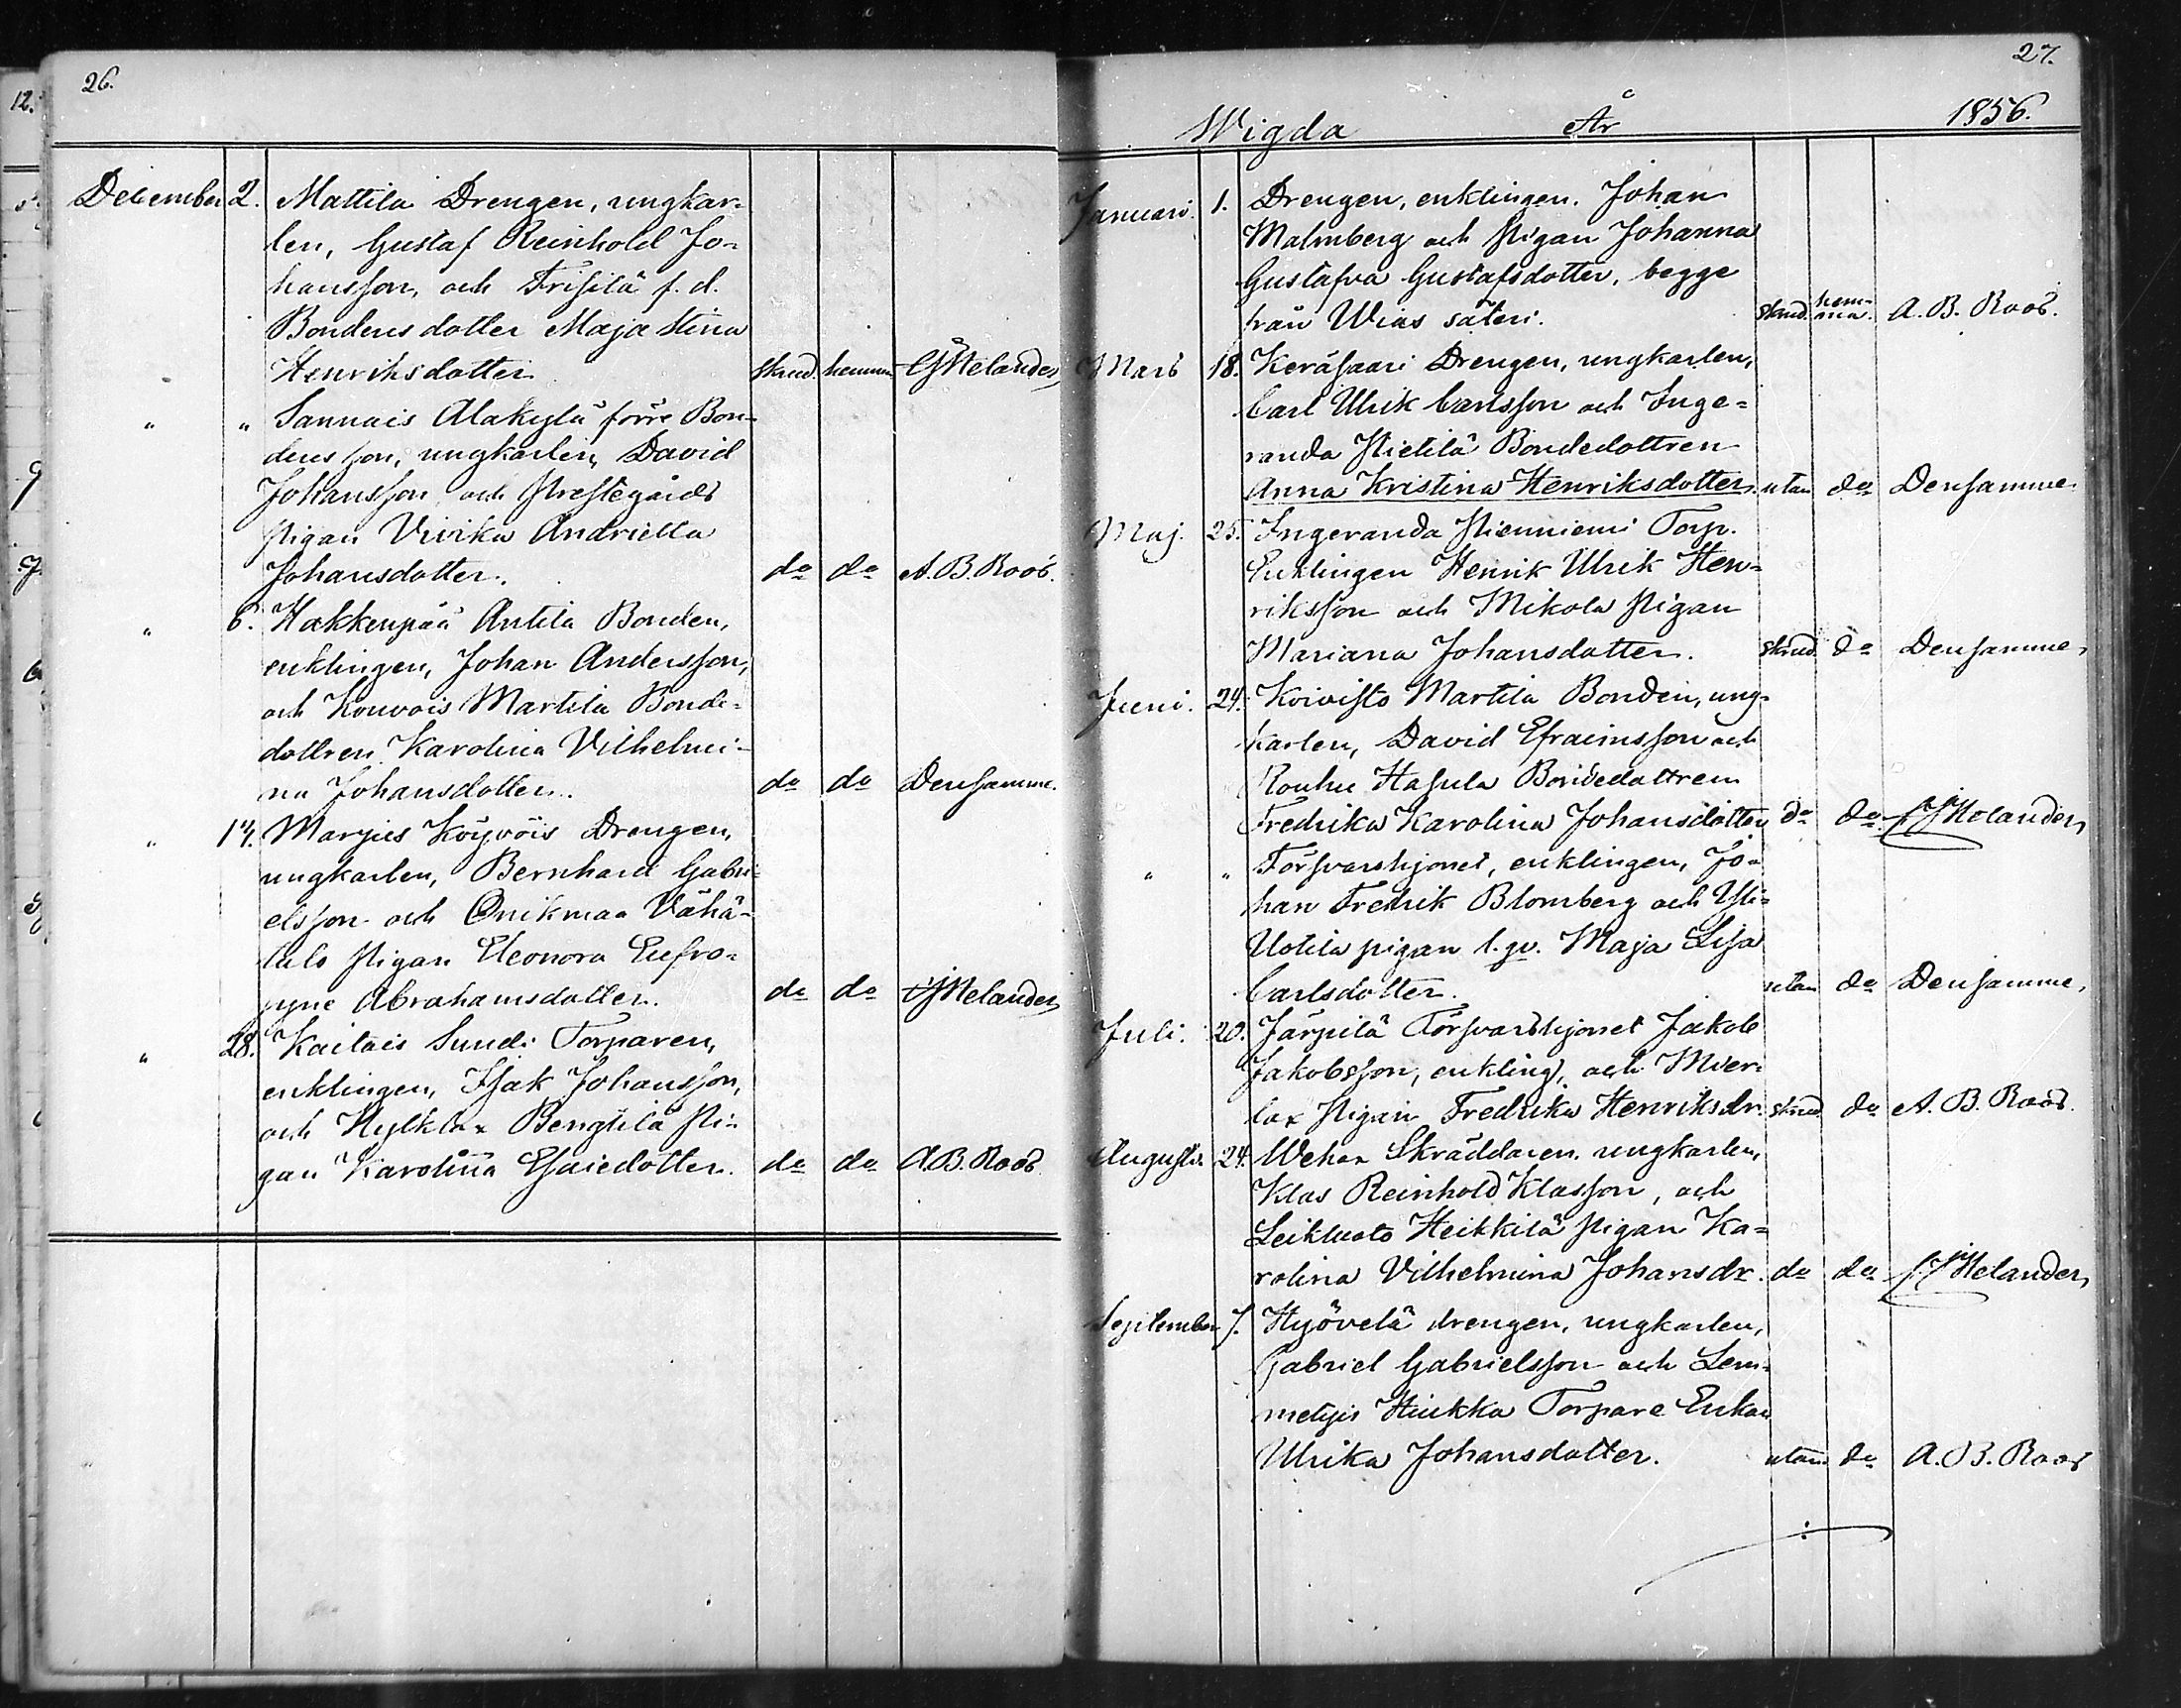 26.
December 2. Mattila Drengen, ungkar-
len, Gustaf Reinhold Jo-
hansson, och Frisilä f. d.
Bondens dotter Maja Stina
Henriksdotter. skrud. hemma Helander
" " Sannais Alakylä förre Bon-
dens son, ungkarlen, David
Johansson och Prestegårds
Pigan Vivika Andrietta
Johansdotter. do do A. B. Roos.
" 6. Hakkenpää Antila Bonden,
enklingen, Johan Andersson,
och Kouvois Martila Bonde-
dottren Karolina Vilhelmi-
na Johansdotter. do do Densamme.
" 14. Marjus Köyvöis Drengen,
ungkarlen, Bernhard Gabri-
elsson och Onikmaa Vähä-
talo Pigan Eleonora Eufro-
syne Abrahamsdotter. do do Helander
" 28. Kaitais Sundi Torparen,
enklingen, Isak Johansson,
och Hylklax Bengtilä Pi-
gan Karolina Esaiedotter. do do A. B. Roos.
27.
Wigda År 1856.
Januari. 1. Drengen, enklingen, Johan
Malmberg och Pigan Johanna
Gustafva Gustafsdotter, begge
från Wias säteri. skrud. hem-
ma. A. B. Roos.
Mars 18. Keräsaari Drengen, ungkarlen,
Carl Ulrik Carlsson och Inge-
randa Pietilä Bondedottren
Anna Kristina Henriksdotter. utan do Densamme.
Maj. 25. Ingeranda Pienniemi Torp.
Enklingen Henrik Ulrik Hen-
riksson och Mikola Pigan
Mariana Johansdotter. skrud. do Densamme,
Juni. 24. Koivisto Martila Bonden, ung-
karlen, David Efraimsson och
Rouhu Hasula Bondedottren
Fredrika Karolina Johansdotter do do Helander
" " Försvarshjonet, enklingen, Jo-
han Fredrik Blomberg och Yli-
Uotila pigan l. qv. Maja Lisa
Carlsdotter. utan do Densamme,
Juli. 20. Järpilä Försvarshjonet Jakob
Jakobsson, enkling, och Mier-
lax Pigan Fredrika Henriksdr. skrud do A. B. Roos.
Augusti. 24. Wehax Skräddaren, ungkarlen,
Klas Reinhold Klasson, och
Leikluoto Heikkilä Pigan Ka-
rolina Vilhelmina Johansdr. do do Helander
September 7. Hyövelä drengen, ungkarlen,
Gabriel Gabrielsson och Lem-
metyis Hiukka Torpare Enkan
Ulrika Johansdotter. utan do A. B. Roos